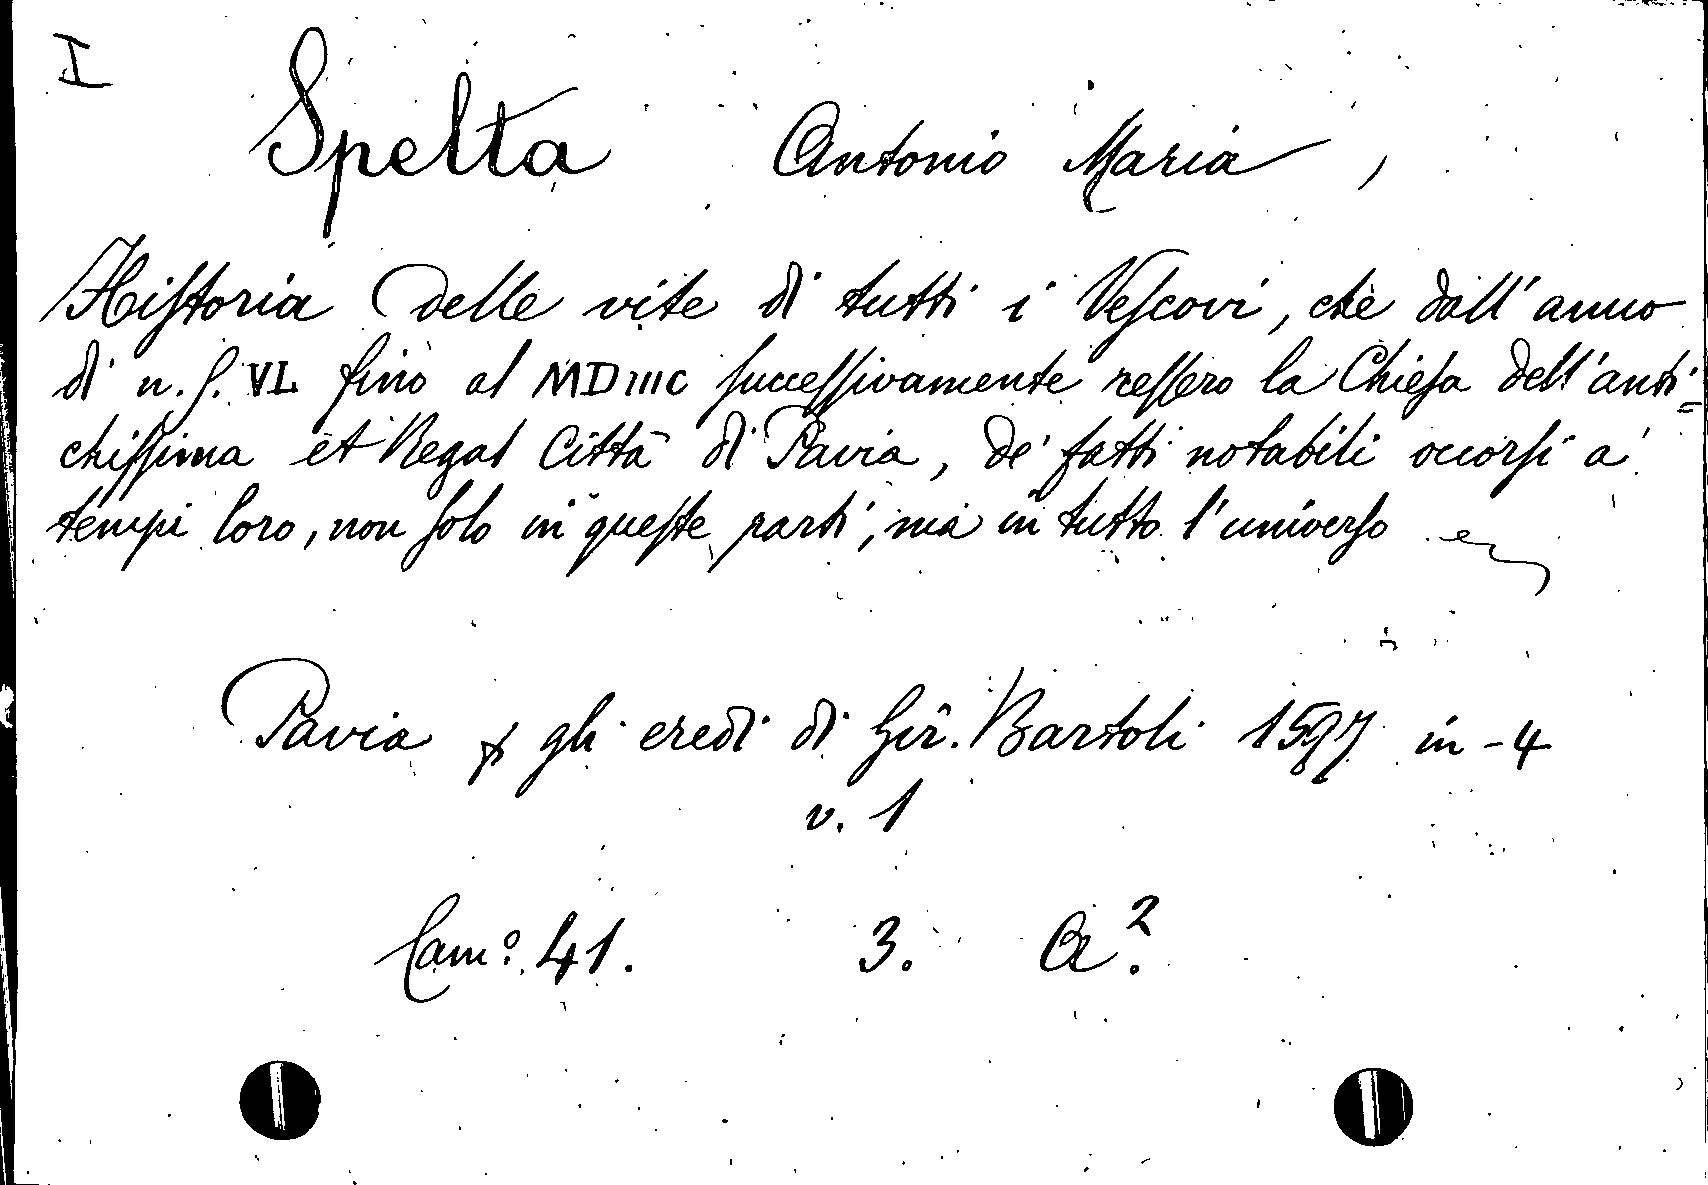 I
Spelta Antonio Maria,
Hiſtoria delle vite di tutti i Veſcovi, che dall'anno
di n. S. VL fino al MDIIIC ſucceſſivamente reſſero la Chieſa dell'anti=
chiſſima et Regal Città di Pavia, de' fatti notabili occorſi a'
tempi loro, non ſolo in queſte parti, ma in tutto l'univerſo
Pavia p gli eredi di Gir. Bartoli 1597 in-4
v. 1
Cam.º 41. 3. A.²